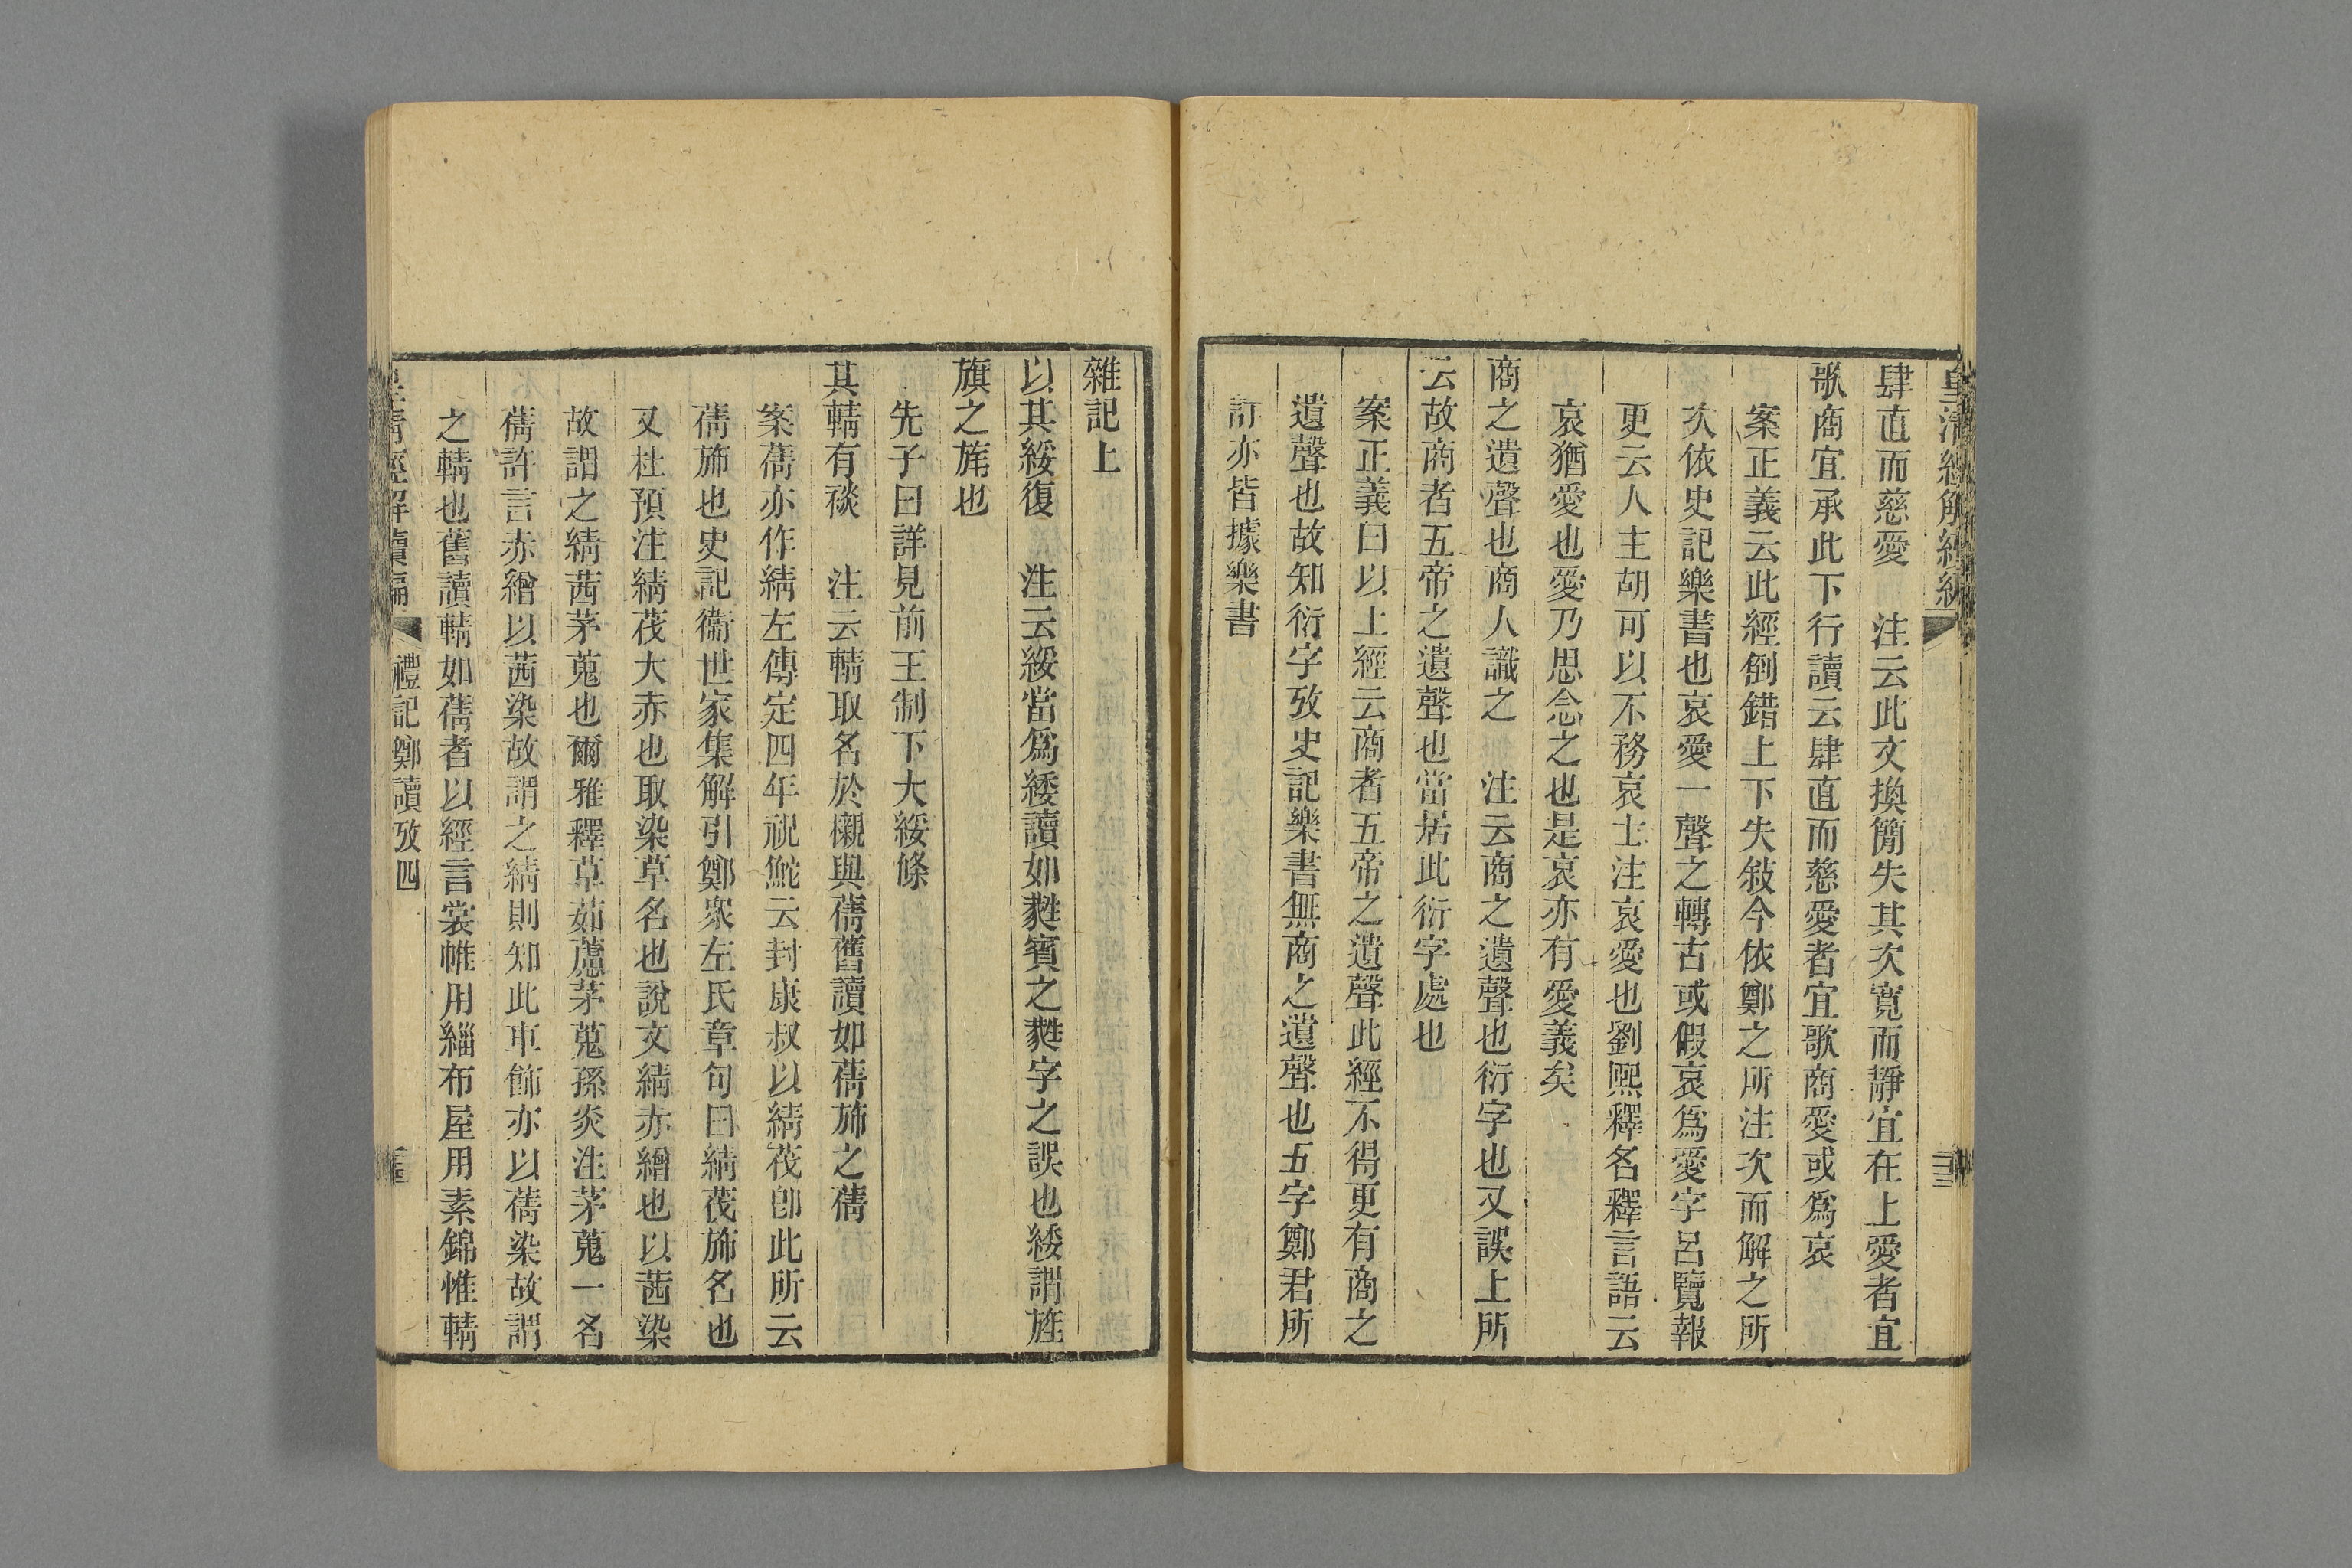 皇清經解續編
肆直而慈愛　注云此文換簡失其次寬而靜宜在上愛者宜
歌商宜承此下行讀云肆直而慈愛者宜歌商愛或爲哀
案正義云此經倒錯上下失敍今依鄭之所注次而解之所
次依史記樂書也哀愛一聲之轉古或假哀爲愛字呂覽報
更云人主胡可以不務哀士注哀愛也劉熙釋名釋言語云
哀猶愛也愛乃思念之也是哀亦有愛義矣
商之遺聲也商人識之　注云商之遺聲也衍字也又誤上所
云故商者五帝之遺聲也當居此衍字處也
案正義曰以上經云商者五帝之遺聲此經不得更有商之
遺聲也故知衍字攷史記樂書無商之遺聲也五字鄭君所
訂亦皆據樂書
雜記上
以其綏復　注云綏當爲緌讀如蕤賓之蕤字之誤也緌謂旌
旗之旄也
先子曰詳見前王制下大綏條
其輤有裧　注云輤取名於櫬與蒨舊讀如蒨旆之蒨
案蒨亦作綪左傳定四年祝鮀云封康叔以綪茷卽此所云
蒨旆也史記衞世家集解引鄭眾左氏章句曰綪茷旆名也
又杜預注綪茷大赤也取染草名也說文綪赤繒也以茜染
故謂之綪茜茅蒐也爾雅釋草茹藘茅蒐孫炎注茅蒐一名
蒨許言赤繒以茜染故謂之綪則知此車飾亦以蒨染故謂
之輤也舊讀輤如蒨者以經言裳帷用緇布屋用素錦惟輤
皇清經解續編　禮記鄭讀攷四